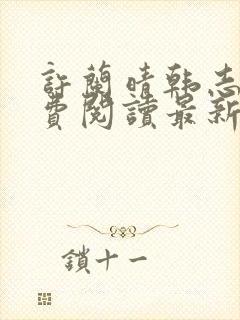 許蘭晴韓志
費閱讀最新
鎖十一